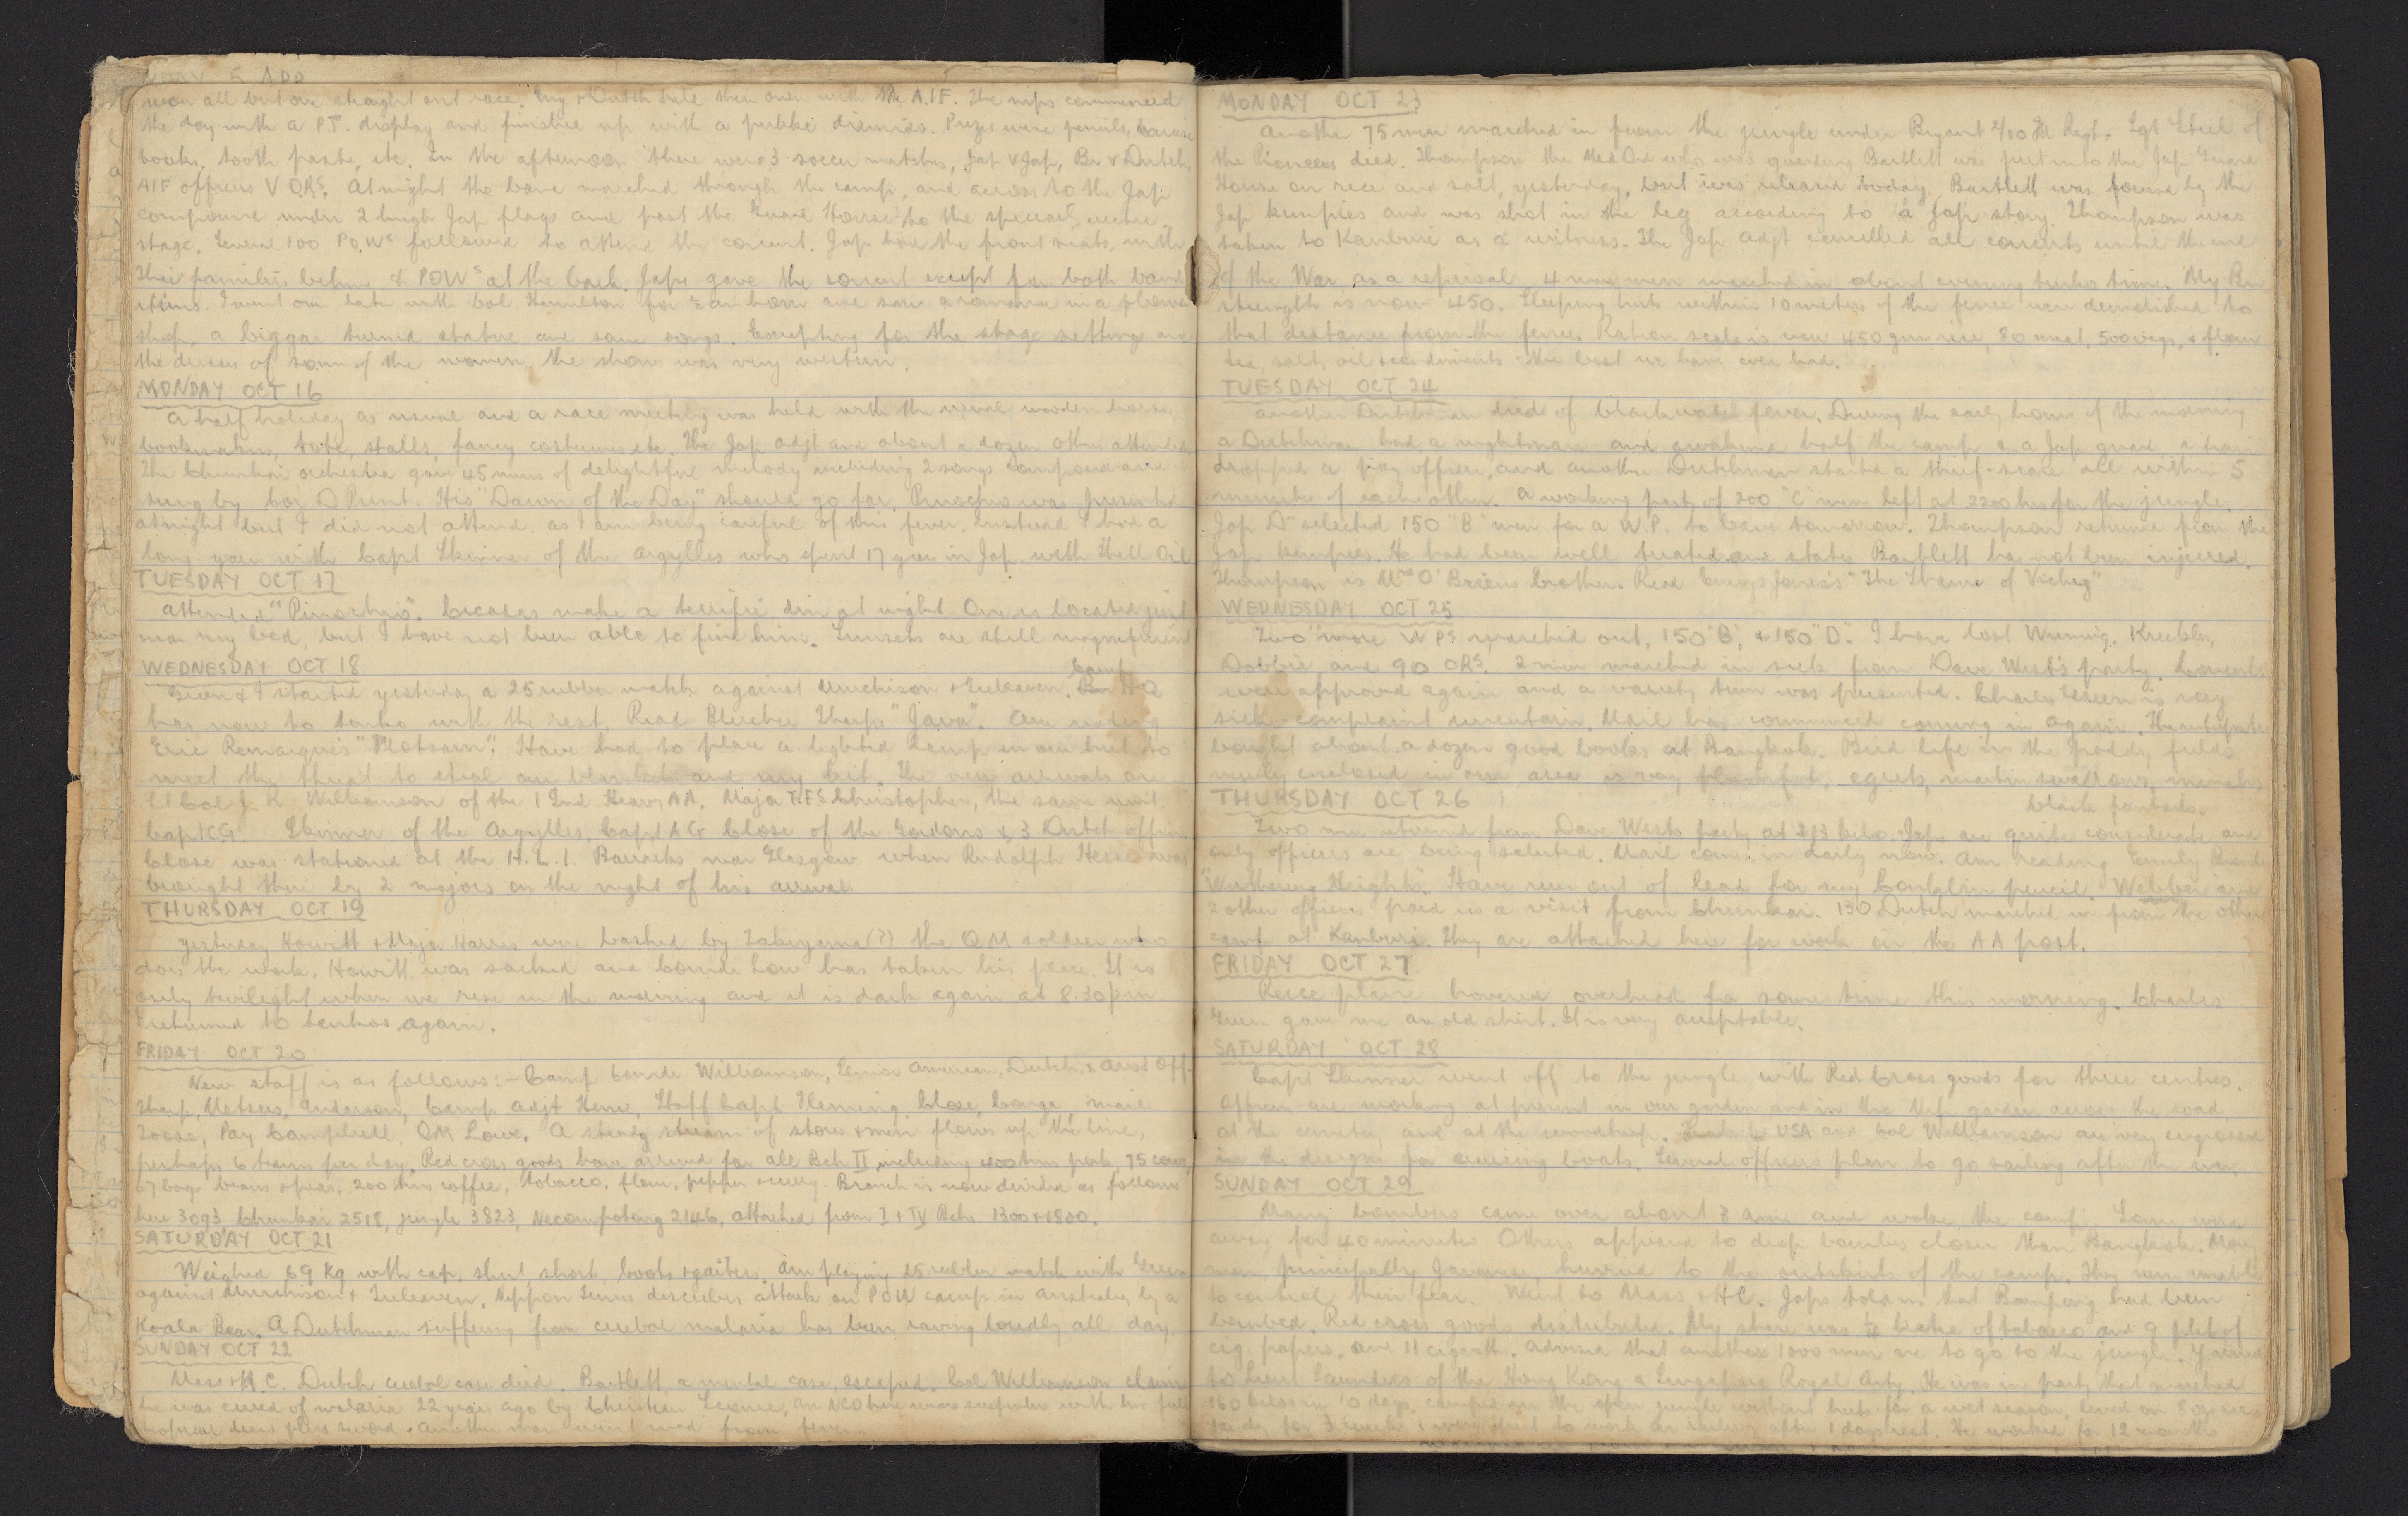 won all but one straight out race. Eng & Dutch held their own with the A.I.F. The nips commenced
the day with a P.T. display and finished up with a public dismiss. Prizes were pencils, exercise
books, tooth paste, etc. In the afternoon there were 3 soccer matches, Jap V Jap, Br V Dutch
AIF officers V ORs. At night the band marched through the camp, and across to the Jap
compound under 2 huge Jap flags and past the Guard House to the specially erected
stage. Several 100 P.O.Ws followed to attend the concert. Japs had the front seats, with
Thai families behind & POWs at the back. Japs gave the concert except for both band
items. I went over later with Col Hamilton for ½ an hour and saw a romance in a flower
shop, a beggar turned statue and some songs. Excepting for the stage setting and
the dresses of some of the women, the show was very western.
MONDAY OCT 16
A half holiday as usual and a race meeting was held with the usual wooden horses,
bookmakers, tote, stalls, fancy costumes etc. The Jap adjt and about a dozen others attended
The Chunkai orchestra gave 45 mins of delightful melody including 2 songs composed and
sung by Cor D Prunt. His "Dawn of the Day" should go far. Pinochio was presented
at night but I did not attend as I am being careful of this fever, instead I had a
long yarn with Capt Skinner of the Argylles who spent 17 years in Jap. with Shell Oil
TUESDAY OCT 17
Attended "Pinochio". Cicadas make a terrific din at night. One is located just
near my bed, but I have not been able to find him. Sunsets are still magnificent
WEDNESDAY OCT 18
Green & I started yesterday a 25 rubber match against Murchison & Treleaven. Camp HQ
has now to tenko with the rest. Read "Java". Am reading
Eric Remarque's "Flotsam". Have had to place a lighted lamp in our hut to
meet the threat to steal our blankets and my kit. The new arrivals are
Lt Col J. R. Williamson of the 1 Ind Heavy AA. Major T.F.S Christopher, the same unit,
Capt C.G. Skinner of the Argylles, Capt A G Close of the Gordons & 3 Dutch officers
Close was stationed at the H.L.I. Barracks near Glasgow when Rudolph Hess was
brought there by 2 majors on the night of his arrival.
THURSDAY OCT 19
Yesterday Howitt & Major Harris were bashed by Takeyama(?) the QM soldier who
does the work. Howitt was sacked and Comdr Low has taken his place. It is
only twilight when we rise in the morning and it is dark again at 8.30 pm
I returned to tenkos again.
FRIDAY OCT 20
New staff is as follows:- Camp Comdr Williamson, Senior American, Dutch, & Aust Off.
Tharp, Metsers, Anderson, Camp Adjt Home, Staff Capts Fleming, Close, mail
Pay Campbell, QM Low. A steady stream of stores & men flows up the line,
perhaps 6 trains per day. Red cross goods have arrived for all Bch II including 400 tins pork, 75 cows,
67 bags beans & peas, 200 tins coffee, tobacco, flour, pepper & curry. Branch is now divided as follows
here 3093, Chunkai 2518, jungle 3823, Necompatong 2146, attached from I & IV Bchs 1300 & 1800.
SATURDAY OCT 21
Weighed 69 kg with cap, shirt, shorts, boots & gaiters. Am playing 25 rubber match with Green
against Murchison & Treleaven. Nippon Times describes attack on POW camp in Australia by a
Koala Bear. A Dutchman suffering from cerebal malaria has been raving loudly all day.
SUNDAY OCT 22
Mass & H.C. Dutch cerebal case died. Bartlett, a mental case, escaped. Col Williamson claims
he was cured of malaria 22 years ago by Christian Science. An NCO here was with his full
tropical dress plus sword. Another man went mad from fever.
MONDAY OCT 23
Another 75 men marched in from the jungle under Bryant 2/10 Fd Regt. Sgt Steel of
the Pioneers died. Thompson the Med Ord who was guarding Bartlett was put into the Jap Guard
House on rice and salt, yesterday, but was released today. Bartlett was found by the
Jap kempies and was shot in the leg according to a Jap story. Thompson was
taken to Kanburi as a witness. The Jap adjt cancelled all concerts until the end
of the War as a reprisal. 4 men marched in about evening tenko time. My Bn
strength is now 450. Sleeping huts within 10 metres of the fence were demolished to
that distance from the fence. Ration scale is now 450 gm rice, 80 meat, 500 vegs, & flour
tea, salt, oil & condiments - the best we have ever had.
TUESDAY OCT 24
Another Dutchman died of blackwater fever. During the early hours of the morning
a Dutchman had a nightmare and awakened half the camp & a Jap guard, a
dropped a officer, and another Dutchman started a thief-scare all within 5
minutes of each other. A working party of 200 "C" men left at 2200 hrs for the jungle.
Jap Dr selected 150 "B" men for a W.P. to leave tomorrow. Thompson returned from the
Jap kempies. He had been well treated and states Bartlett has not been injured.
Thompson is Mrs O'Briens brother. Read Jones's "The of Vichy"
WEDNESDAY OCT 25
Two more W Ps marched out, 150 "B", & 150 "D". I have lost Winning,
Dobbie, and 90 ORs. 2 men marched in sick from Dave West's party. Concerts
were approved again and a variety turn was presented. Charles Green is very
sick - complaint uncertain. Mail has commenced coming in again. The interpreter
bought about a dozen good books at Bangkok. Bird life in the paddy fields
newly enclosed in our area is very plentiful, egrets, martin swallows, minahs
black fantails.
THURSDAY OCT 26
Two men returned from Dave Wests party at 213 kilo. Japs are quite considerate and
only officers are being saluted. Mail comes in daily now. Am reading Emily Bronte
"Wuthering Heights". Have run out of lead for my pencil. Webber and
2 other officers paid us a visit from Chunkai. 130 Dutch marched in from the other
camp at Kanburi. They are attached here for work on the AA post.
FRIDAY OCT 27
Recce plane hovered overhead for some time this morning. Charles
Green gave me an old shirt. It is very acceptable.
SATURDAY OCT 28
Capt Skinner went off to the jungle with Red Cross goods for three centres.
Officers are working at present in our garden and in the Nip garden across the road,
at the cemetery and at the woodheap. USA and Col Williamson are very engrossed
in the designs for cruising boats. Several officers plan to go sailing after the war.
SUNDAY OCT 29
Many bombers came over about 3 am and woke the camp. Some were
away for 40 minutes. Others appeared to drop bombs closer than Bangkok. Many
men, principally Javanese, hurried to the outskirts of the camp. They were unable
to control their fear. Went to Mass & HC. Japs told us that Bampong had been
bombed. Red cross goods distributed. My share was katie of tobacco and 9 pkts of
cig papers, and 11 cigarettes. Advised that another 1000 men are to go to the jungle. Yarned
to Lieut Saunders of the Hong Kong & Singapore Royal Arty. He was in party that marched
160 kilos in 10 days, camped in the open jungle without huts for a wet season, lived on 8 ozs rice
for 3 weeks & were tried to work on after 1 days rest. He worked for 12 months